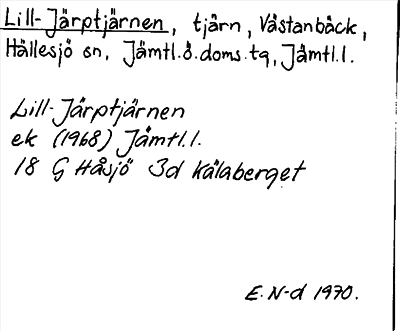 Lill-Järptjärnen, tjärn, Västanbäck,
Hällesjö sn, Jämtl.ö.doms.tq, Jämtl.l.
Lill-Järptjärnen
ek (1968) Jämtl.l.
18 G Håsjö 3d Kälaberget
E. N-d 1970.